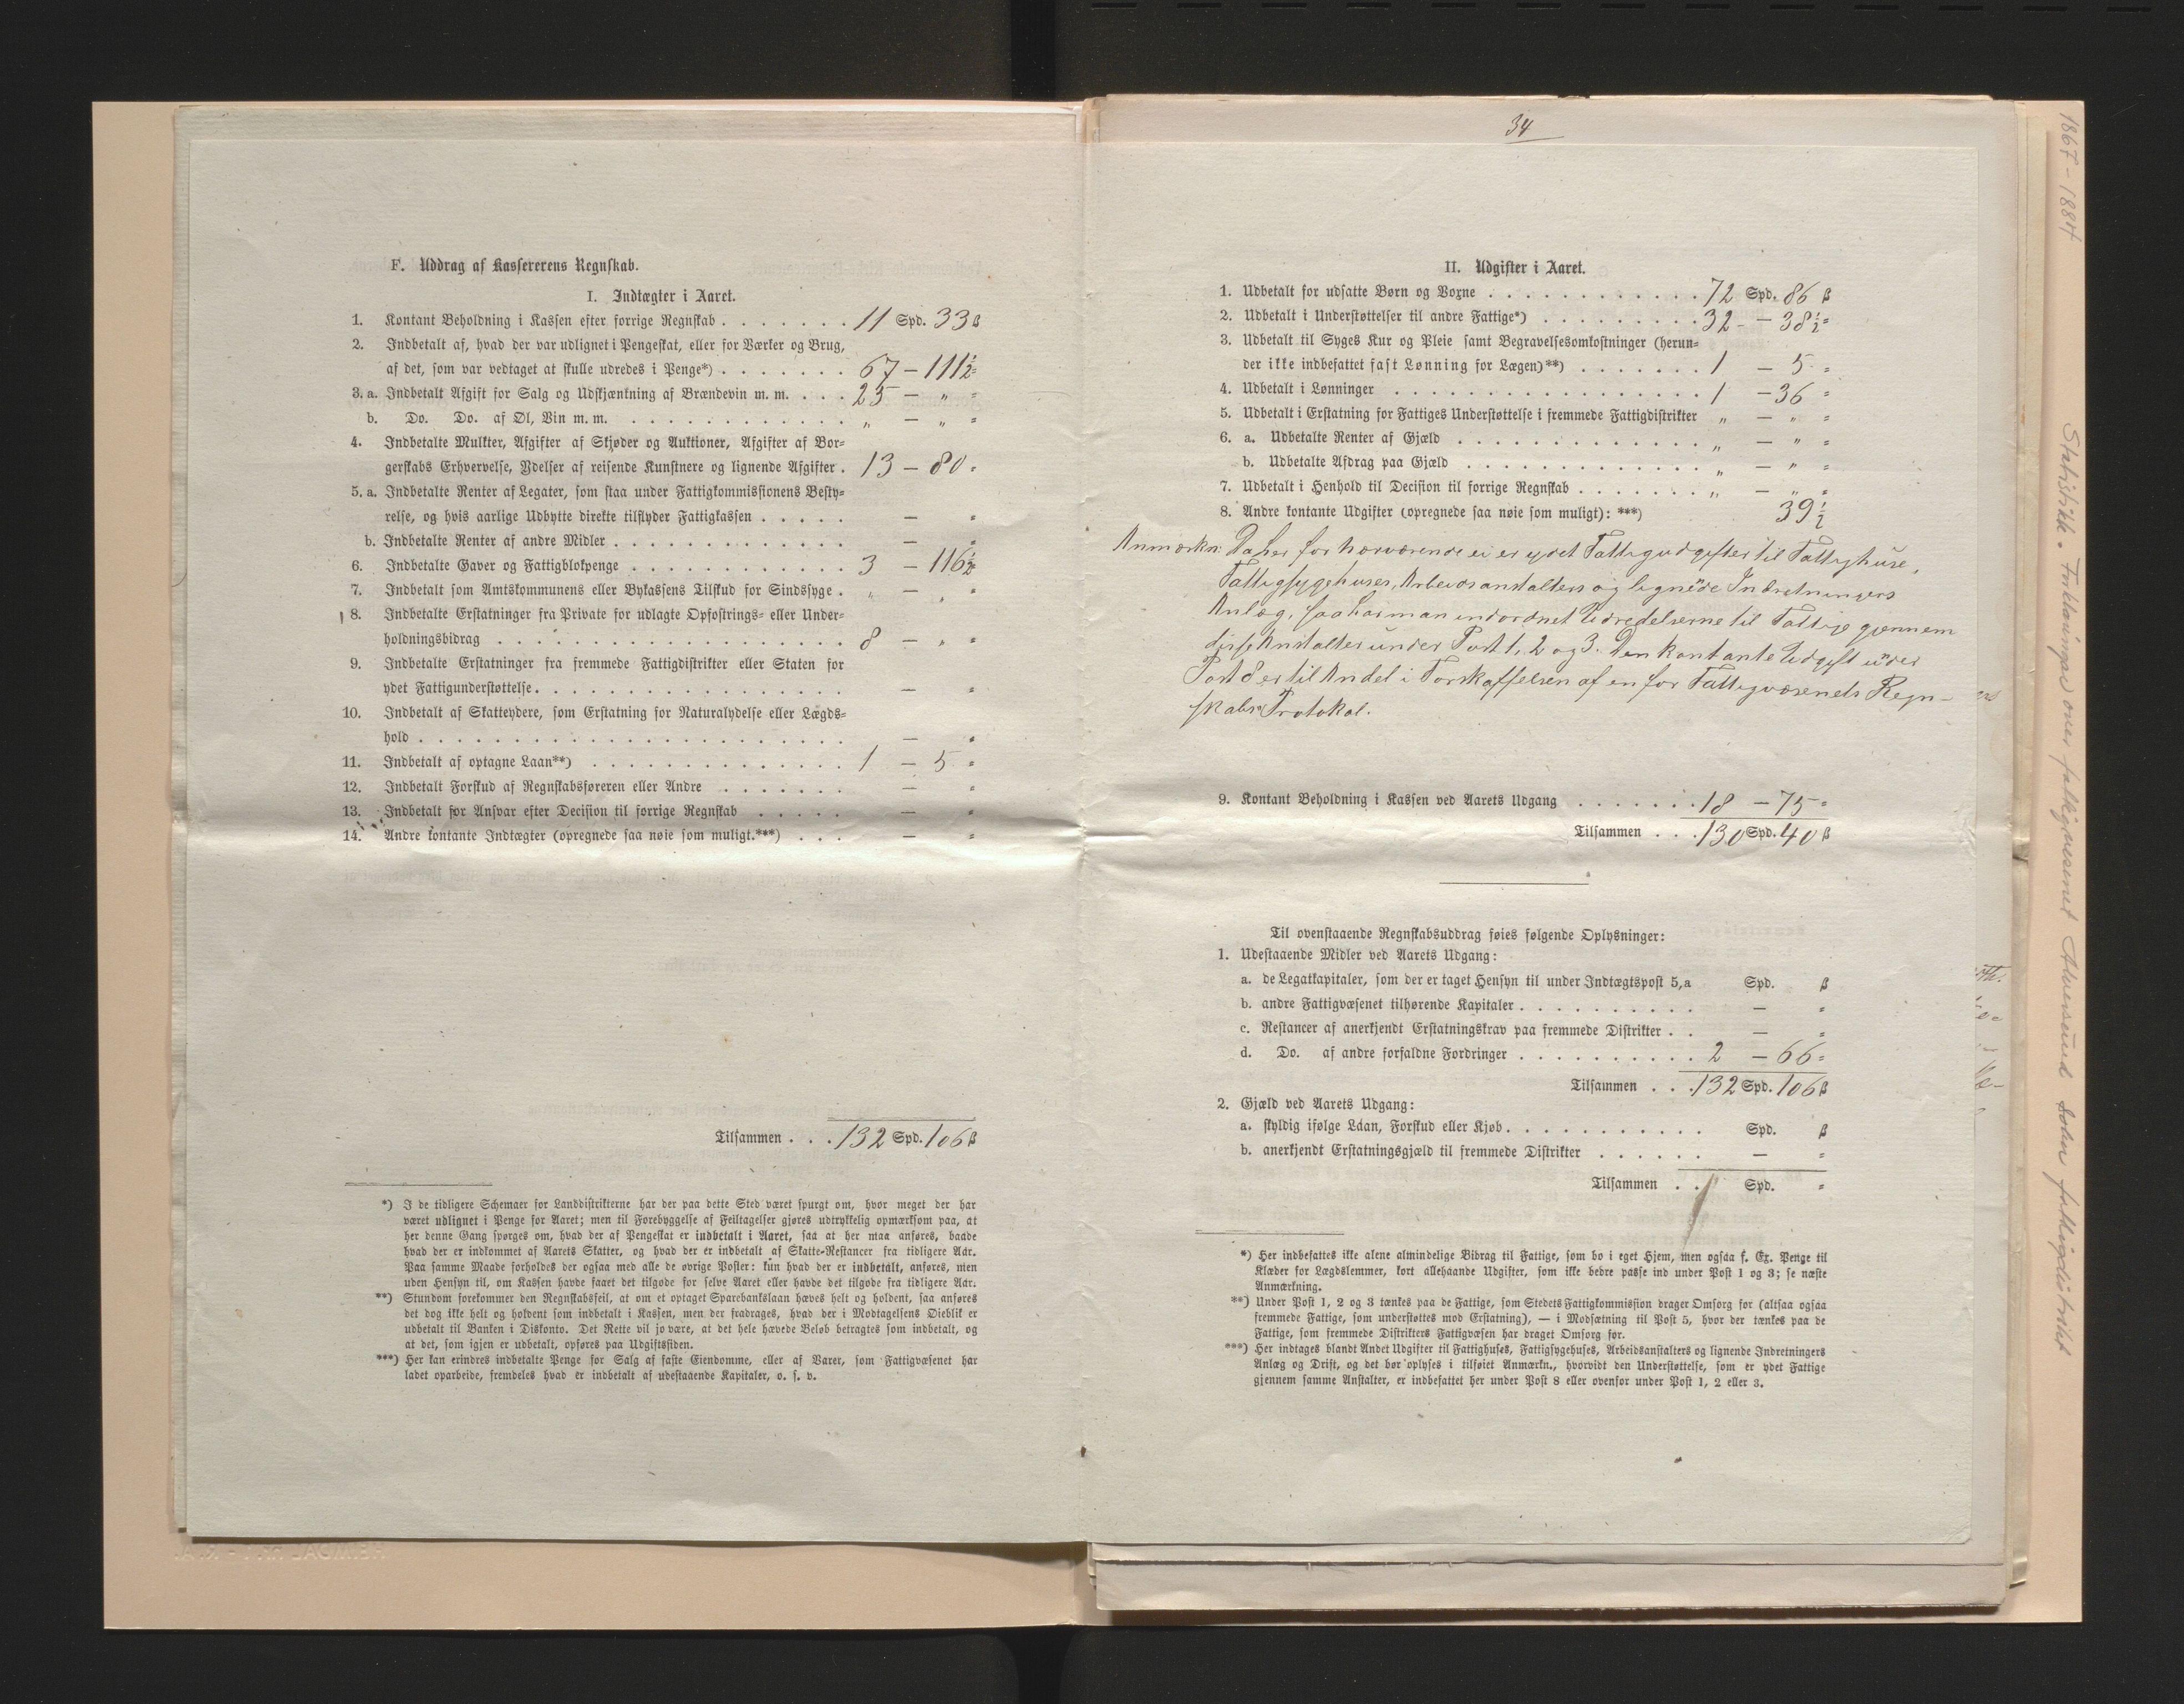 F. Uddrag af Kassererens Regnskab.
I. Indtægter i Aaret.
1. Kontant Beholdning i Kassen efter forrige Regnskab . . . . . . . 11 Spd. 33 ß
2. Indbetalt af, hvad der var udlignet i Pengeskat, eller for Værker og Brug,
af det, som var vedtaget at skulle udredes i Penge*) . . . . . . . 67 — 111½ =
3. a. Indbetalt Afgift for Salg og Udskjænkning af Brændevin m. m. . . . 25 — „ =
b. Do. Do. af Øl, Vin m. m. . . . . . . . . . . . . „ — „ =
4. Indbetalte Mulkter, Afgifter af Skjøder og Auktioner, Afgifter af Bor=
gerskabs Erhvervelse, Ydelser af reisende Kunstnere og lignende Afgifter . 13 — 80 =
5. a. Indbetalte Renter af Legater, som staa under Fattigkommissionens Besty=
relse, og hvis aarlige Udbytte direkte tilflyder Fattigkassen . . . . . — =
b. Indbetalte Renter af andre Midler . . . . . . . . . . . . . — =
6. Indbetalte Gaver og Fattigblokpenge . . . . . . . . . . . . 3 — 116½
7. Indbetalt som Amtskommunens eller Bykassens Tilskud for Sindssyge . „ — „ =
8. Indbetalte Erstatninger fra Private for udlagte Opfostrings= eller Under=
holdningsbidrag . . . . . . . . . . . . . . . . . . 8 — „ =
9. Indbetalte Erstatninger fra fremmede Fattigdistrikter eller Staten for
ydet Fattigunderstøttelse . . . . . . . . . . . . . . . . — =
10. Indbetalt af Skatteydere, som Erstatning for Naturalydelse eller Lægds=
hold . . . . . . . . . . . . . . . . . . . . . . — =
11. Indbetalt af optagne Laan**) . . . . . . . . . . . . . . 1 — 5 =
12. Indbetalt Forskud af Regnskabsføreren eller Andre . . . . . . . — =
13. Indbetalt for Ansvar efter Decision til forrige Regnskab . . . . . — =
14. Andre kontante Indtægter (opregnede saa nøie som muligt.***) . . . — =
Tilsammen . . . 132 Spd. 106 ß
*) I de tidligere Schemaer for Landdistrikterne har der paa dette Sted været spurgt om, hvor meget der har
været udlignet i Penge for Aaret; men til Forebyggelse af Feiltagelser gjøres udtrykkelig opmærksom paa, at
her denne Gang spørges om, hvad der af Pengeskat er indbetalt i Aaret, saa at her maa anføres, baade
hvad der er indkommet af Aarets Skatter, og hvad der er indbetalt af Skatte-Restancer fra tidligere Aar.
Paa samme Maade forholdes der ogsaa med alle de øvrige Poster: kun hvad der er indbetalt, anføres, men
uden Hensyn til, om Kassen havde faaet det tilgode for selve Aaret eller havde det tilgode fra tidligere Aar.
**) Stundom forekommer den Regnskabsfeil, at om et optaget Sparebankslaan hæves helt og holdent, saa anføres
det dog ikke helt og holdent som indbetalt i Kassen, men der fradrages, hvad der i Modtagelsens Øieblik er
udbetalt til Banken i Diskonto. Det Rette vil jo være, at det hele hævede Beløb betragtes som indbetalt, og
at det, som igjen er udbetalt, opføres paa Udgiftssiden.
***) Her kan erindres indbetalte Penge for Salg af faste Eiendomme, eller af Varer, som Fattigvæsenet har
ladet oparbeide, fremdeles hvad er indbetalt af udestaaende Kapitaler, o. s. v.
34
II. Udgifter i Aaret.
1. Udbetalt for udsatte Børn og Voxne . . . . . . . . . . . . 72 Spd. 86 ß
2. Udbetalt i Understøttelser til andre Fattige*) . . . . . . . . . 32 — 38½ =
3. Udbetalt til Syges Kur og Pleie samt Begravelsesomkostninger (herun=
der ikke indbefattet fast Lønning for Lægen)**) . . . . . . . 1 — 5 =
4. Udbetalt i Lønninger . . . . . . . . . . . . . . . . . 1 — 36 =
5. Udbetalt i Erstatning for Fattiges Understøttelse i fremmede Fattigdistrikter „ — „ =
6. a. Udbetalte Renter af Gjæld . . . . . . . . . . . . . „ — „ =
b. Udbetalte Afdrag paa Gjæld . . . . . . . . . . . . „ — „ =
7. Udbetalt i Henhold til Decision til forrige Regnskab . . . . . . . „ — „ =
8. Andre kontante Udgifter (opregnede saa nøie som muligt): ***) 39½
Anmærkn: Da her for nærværende ei er ydet Fattigudgifter til Fattighuse,
Fattigsygehuser, Arbeidsanstalters og lignede Indretningers
Anlæg, saa har man indordnet Udredelserne til Fattige gjennem
disse Anstalter under Post 1, 2 og 3. Den kontante Udgift under
Post 8 er til Andel i Forskaffelsen af en for Fattigvæsenets Regn-
skabs Protokol.
9. Kontant Beholdning i Kassen ved Aarets Udgang . . . . . . . 18 — 75 =
Tilsammen . . . 130 Spd. 40 ß
Til ovenstaaende Regnskabsuddrag føies følgende Oplysninger:
1. Udestaaende Midler ved Aarets Udgang:
a. de Legatkapitaler, som der er taget Hensyn til under Indtægtspost 5,a Spd. ß
b. andre Fattigvæsenet tilhørende Kapitaler . . . . . . . . . . — =
c. Restancer af anerkjendt Erstatningskrav paa fremmede Distrikter . . — =
d. Do. af andre forfaldne Fordringer . . . . . . . . . . 2 — 66 =
Tilsammen . . . 132 Spd. 106 ß
2. Gjæld ved Aarets Udgang:
a. skyldig ifølge Laan, Forskud eller Kjøb . . . . . . . . . . . Spd. ß
b. anerkjendt Erstatningsgjæld til fremmede Distrikter . . . . . . — =
Tilsammen . . Spd. =
*) Her indbefattes ikke alene almindelige Bidrag til Fattige, som bo i eget Hjem, men ogsaa f. Ex. Penge til
Klæder for Lægdslemmer, kort allehaande Udgifter, som ikke bedre passe ind under Post 1 og 3; se næste
Anmærkning.
**) Under Post 1, 2 og 3 tænkes paa de Fattige, som Stedets Fattigkommission drager Omsorg for (altsaa ogsaa
fremmede Fattige, som understøttes mod Erstatning), — i Modsætning til Post 5, hvor der tænkes paa de
Fattige, som fremmede Distrikters Fattigvæsen har draget Omsorg for.
***) Her indtages blandt Andet Udgifter til Fattighuses, Fattigsygehuses, Arbeidsanstalters og lignende Indretningers
Anlæg og Drift, og det bør oplyses i tilføiet Anmærkn., hvorvidt den Understøttelse, som er ydet Fattige
gjennem samme Anstalter, er indbefattet her under Post 8 eller ovenfor under Post 1, 2 eller 3.
1867-1884 Statistikk. Forklaringar over fattigvesenet Alversund sokn fattigdistrikt